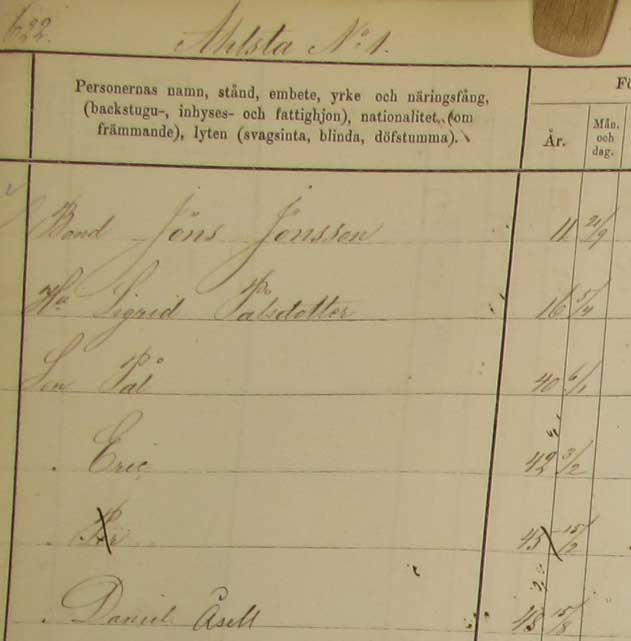 622.
Ahlsta No 1.
Personernas namn, stånd, embete, yrke och näringsfång,
(backstugu-, inhyses- och fattighjon), nationalitet, (om
främmande), lyten (svagsinta, blinda, döfstumma).
Fö
År.
Mån.
och
dag.
Bond Jöns Jönsson 11 21/9
Hu Sigrid Pålsdotter 16 5/4
Son Pål 40 6/1
Eric 42 3/2
Pär 45 15/2
Daniel Åsell 48 15/8